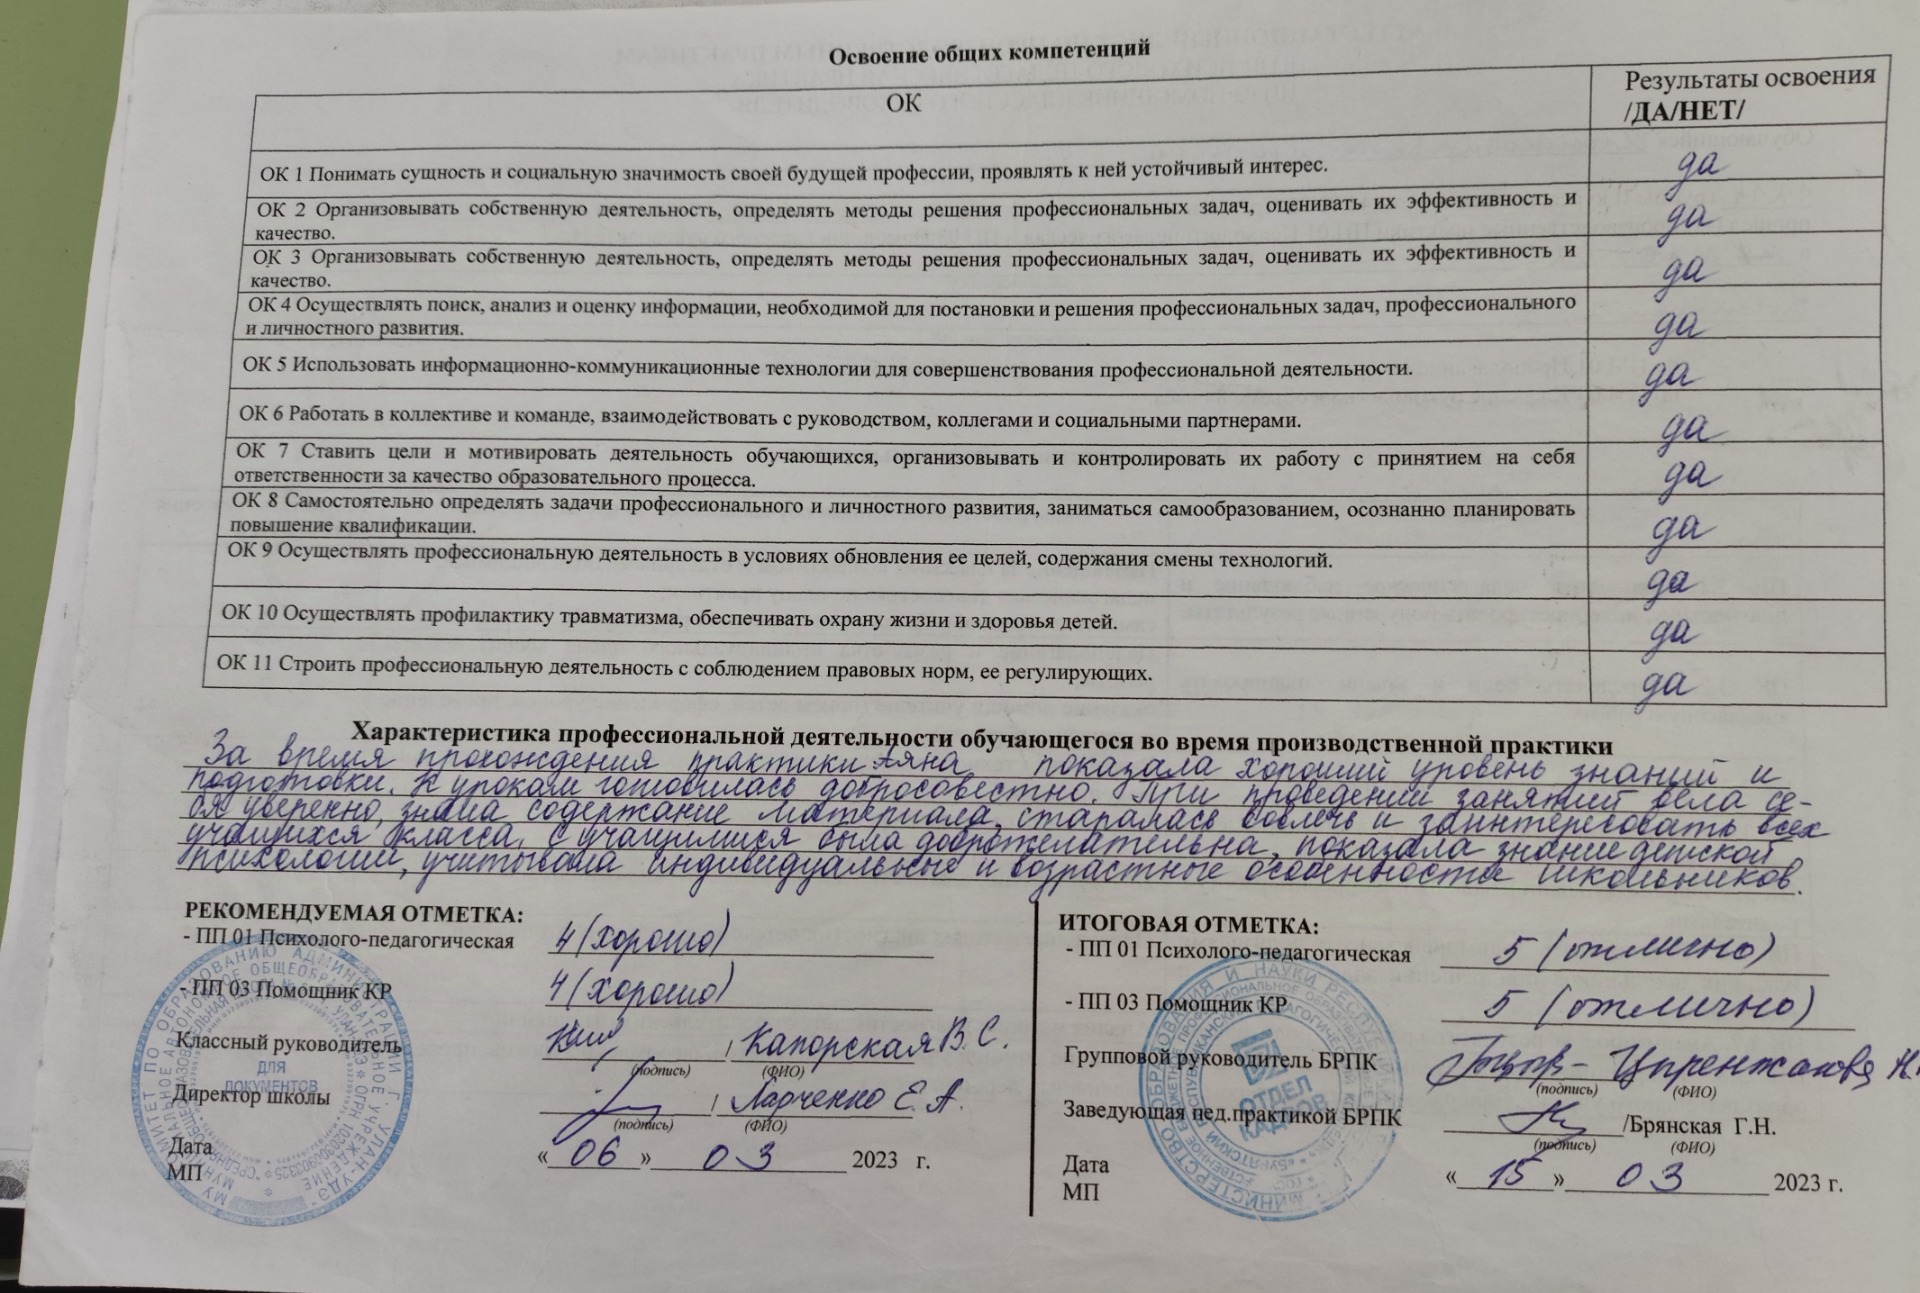 Освоение общих компетенций
ОК
Результаты освоения
/ДА/НЕТ/
ОК 1 Понимать сущность и социальную значимость своей будущей профессии, проявлять к ней устойчивый интерес.
да
ОК 2 Организовывать собственную деятельность, определять методы решения профессиональных задач, оценивать их эффективность и
качество.
да
ОК 3 Организовывать собственную деятельность, определять методы решения профессиональных задач, оценивать их эффективность и
качество.
да
ОК 4 Осуществлять поиск, анализ и оценку информации, необходимой для постановки и решения профессиональных задач, профессионального
и личностного развития.
да
ОК 5 Использовать информационно-коммуникационные технологии для совершенствования профессиональной деятельности.
да
ОК 6 Работать в коллективе и команде, взаимодействовать с руководством, коллегами и социальными партнерами.
да
ОК 7 Ставить цели и мотивировать деятельность обучающихся, организовывать и контролировать их работу с принятием на себя
ответственности за качество образовательного процесса.
да
ОК 8 Самостоятельно определять задачи профессионального и личностного развития, заниматься самообразованием, осознанно планировать
повышение квалификации.
да
ОК 9 Осуществлять профессиональную деятельность в условиях обновления ее целей, содержания смены технологий.
да
ОК 10 Осуществлять профилактику травматизма, обеспечивать охрану жизни и здоровья детей.
да
ОК 11 Строить профессиональную деятельность с соблюдением правовых норм, ее регулирующих.
да
Характеристика профессиональной деятельности обучающегося во время производственной практики
За время прохождения практики Аяна показала хороший уровень знаний и
подготовки. К урокам готовилась добросовестно. При проведении занятий вела се-
бя уверенно, знала содержание материала, старалась вовлечь и заинтересовать всех
учащихся класса. С учащимися была доброжелательна, показала знание детской
психологии, учитывала индивидуальные и возрастные особенности школьников.
РЕКОМЕНДУЕМАЯ ОТМЕТКА:
- ПП 01 Психолого-педагогическая 4 (хорошо)
- ПП 03 Помощник КР 4 (хорошо)
Классный руководитель / Капорская В. С.
(подпись) (ФИО)
Директор школы / Ларченко Е. А.
(подпись) (ФИО)
Дата «06» 03 2023 г.
МП
ДЛЯ
ДОКУМЕНТОВ
ИТОГОВАЯ ОТМЕТКА:
- ПП 01 Психолого-педагогическая 5 (отлично)
- ПП 03 Помощник КР 5 (отлично)
Групповой руководитель БРПК
(подпись) (ФИО)
Заведующая пед.практикой БРПК /Брянская Г.Н.
(подпись) (ФИО)
Дата «15» 03 2023 г.
МП
ОТДЕЛ
КАДРОВ